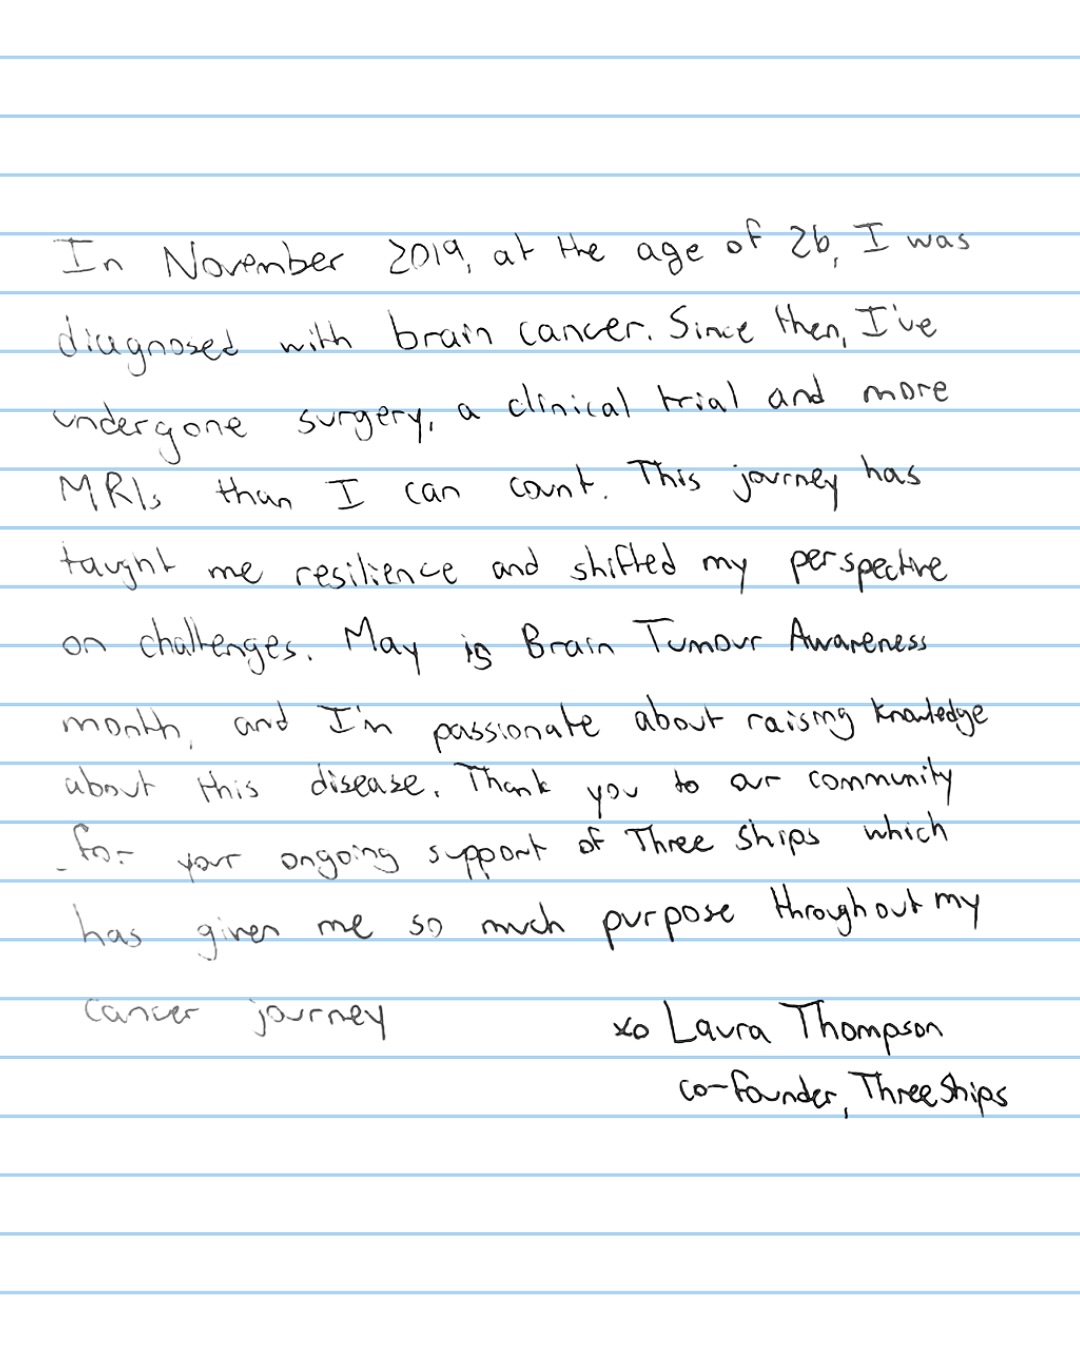 In November 2019, at the age of 26, I was
diagnosed with brain cancer. Since then, I've
undergone surgery, a clinical trial and more
MRIs than I can count. This journey has
taught me resilience and shifted my perspective
on challenges. May is Brain Tumour Awareness
month, and I'm passionate about raising knowledge
about this disease. Thank you to our community
for your ongoing support of Three Ships which
has given me so much purpose throughout my
cancer journey
xo Laura Thompson
co-founder, Three Ships